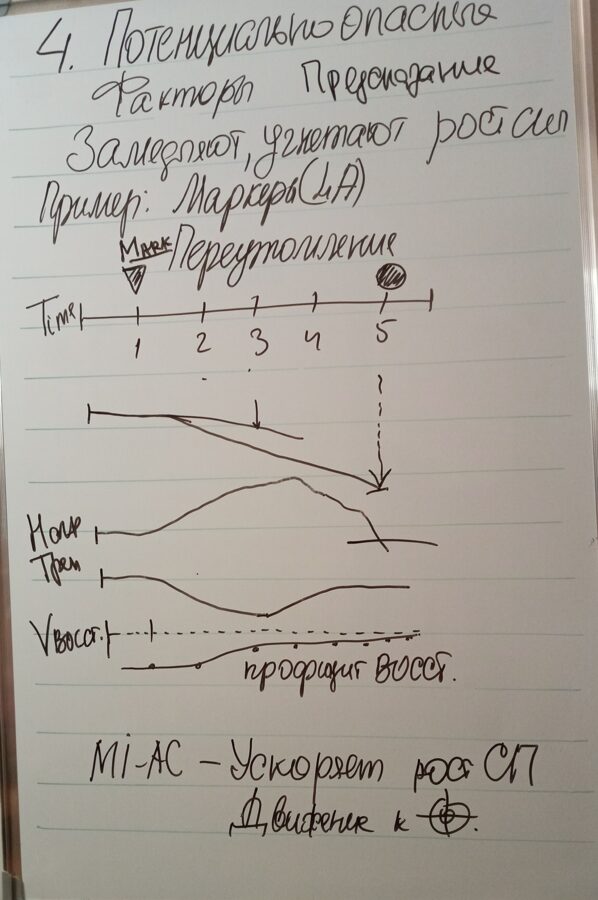 4. Потенциально опасные
Факторы Предсказание
Замедляют, угнетают рост сил
Пример: Маркеры (LA)
Mark Переутомление
Time
1 2 3 4 5
Трен
Vвосст.
профицит восст.
Mi-AC – Ускоряет рост СП
Движение к